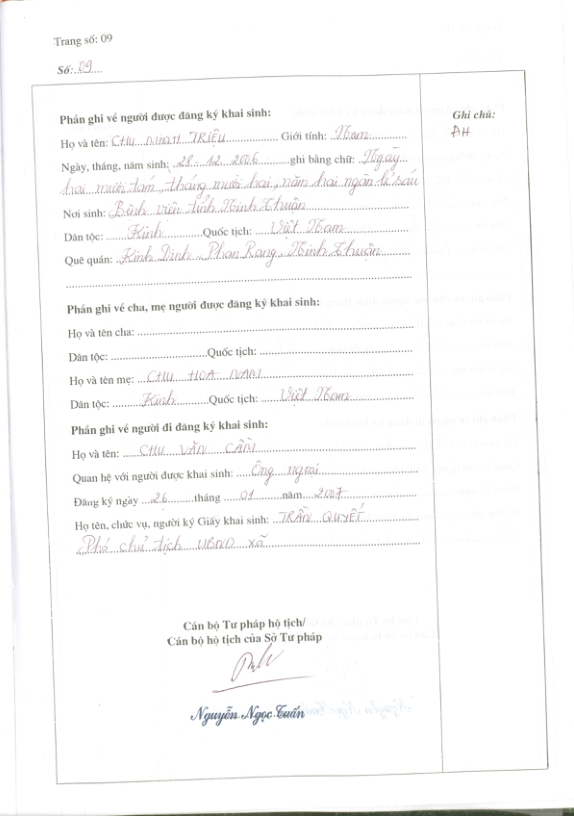 Trang số: 09
Số: 09
Phần ghi về người được đăng ký khai sinh:
Họ và tên: CHU MINH TRIỆU Giới tính: Nam
Ngày, tháng, năm sinh: 28.12.2006 ghi bằng chữ: Ngày
hai mươi tám, tháng mười hai, năm hai ngàn lẻ sáu
Nơi sinh: Bệnh viện tỉnh Ninh Thuận
Dân tộc: Kinh Quốc tịch: Việt Nam
Quê quán: Kinh Dinh, Phan Rang, Ninh Thuận
Phần ghi về cha, mẹ người được đăng ký khai sinh:
Họ và tên cha:
Dân tộc: Quốc tịch:
Họ và tên mẹ: CHU HOA NAN
Dân tộc: Kinh Quốc tịch: Việt Nam
Phần ghi về người đi đăng ký khai sinh:
Họ và tên: CHU VĂN CẦN
Quan hệ với người được khai sinh: Ông ngoại
Đăng ký ngày 26 tháng 01 năm 2007
Họ tên, chức vụ, người ký Giấy khai sinh: TRẦN QUYẾT
Phó chủ tịch UBND xã
Cán bộ Tư pháp hộ tịch/
Cán bộ hộ tịch của Sở Tư pháp
Nguyễn Ngọc Tuấn
Ghi chú:
ĐH